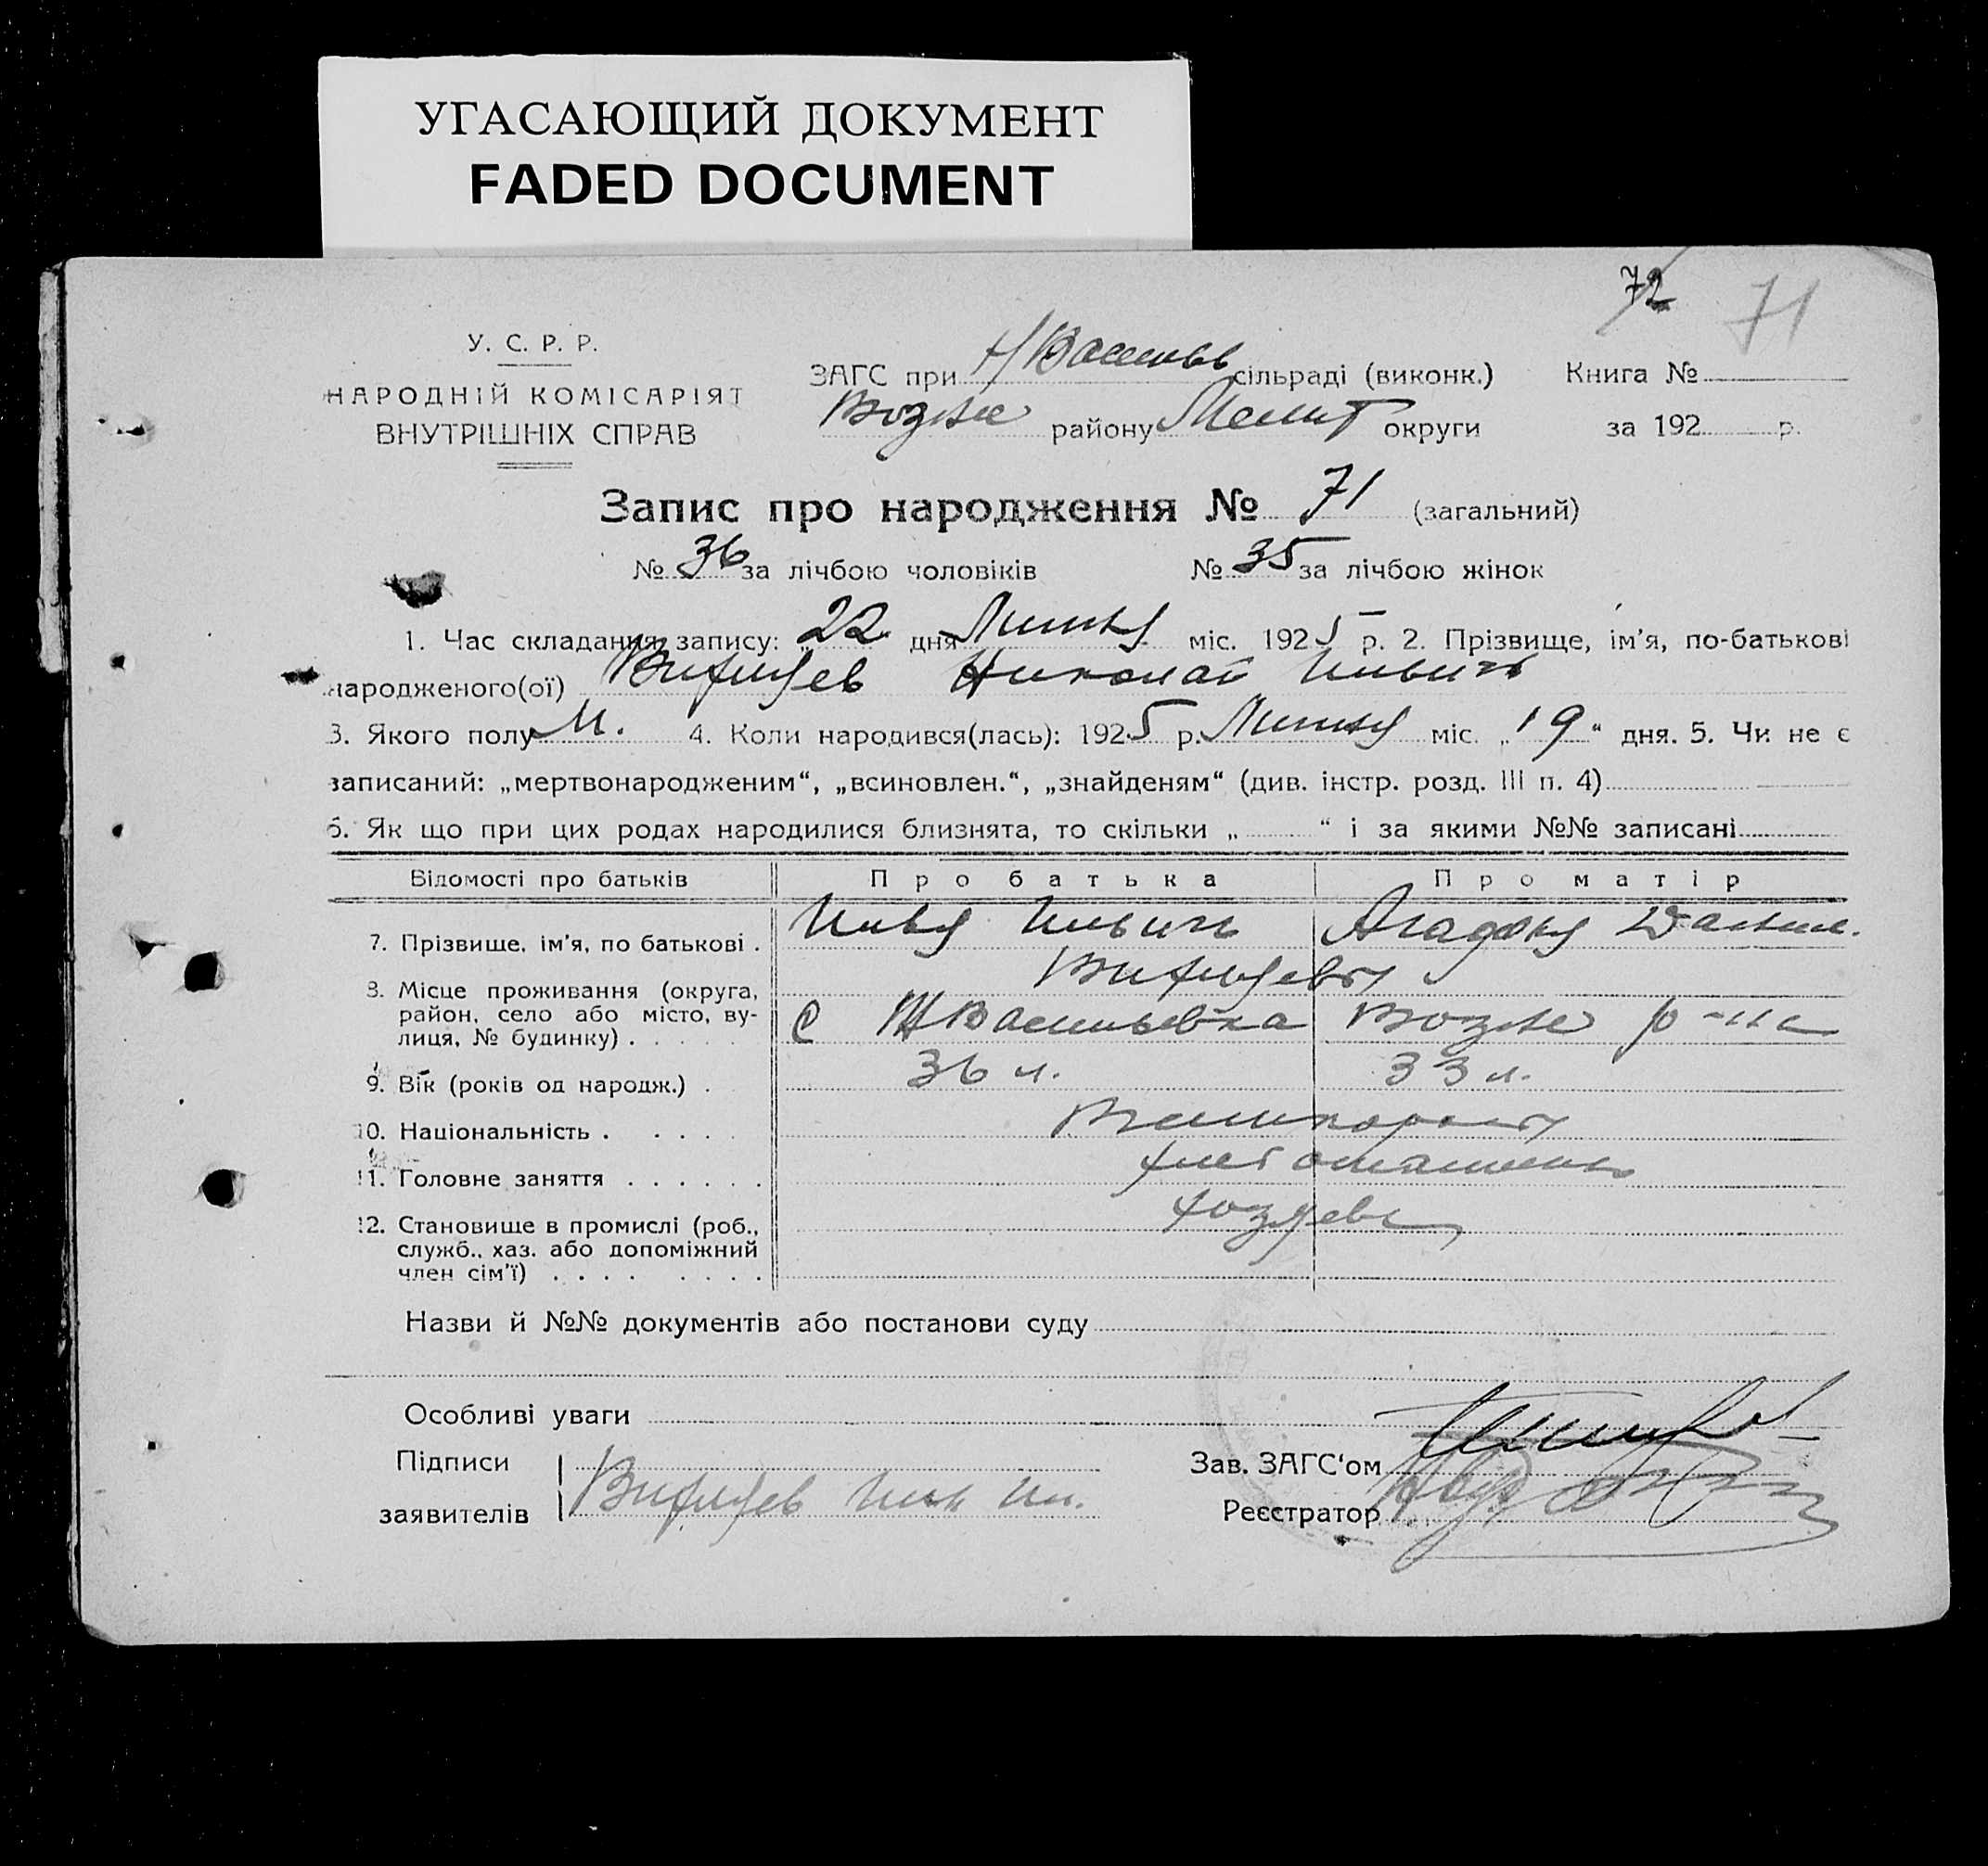 УГАСАЮЩИЙ ДОКУМЕНТ
FADED DOCUMENT
72 71
У. С. Р. Р.
НАРОДНІЙ КОМІСАРІЯТ
ВНУТРІШНІХ СПРАВ
ЗАГС при Н/Васильев сільраді (виконк.) Книга №
району Мелит округи за 192 р.
Запис про народження № 71 (загальний)
№ 36 за лічбою чоловіків № 35 за лічбою жінок
1. Час складання запису: „22 дня міс. 1925 р. 2. Прізвище, ім'я, по-батькові
народженого(ої) Николай Ильичь
3. Якого полу М. 4. Коли народився(лась): 1925 р. міс. „19" дня. 5. Чи не є
записаний: „мертвонародженим", „всиновлен.", „знайденям" (див. інстр. розд. III п. 4)
6. Як що при цих родах народилися близнята, то скільки „ " і за якими №№ записані
Відомості про батьків Про батька Про матір
7. Прізвище, ім'я, по батькові . Илья Ильичь
8. Місце проживання (округа, район, село або місто, вулиця, № будинку) . . . . . с Н Васильевка р-на
9. Вік (років од народж.) . 36 л. 33 л.
10. Національність . . . . .
11. Головне заняття . . . . . .
12. Становище в промислі (роб., служб., хаз. або допоміжний член сім'ї) . . . . . . . .
Назви й №№ документів або постанови суду
Особливі уваги
Підписи
заявителів
Зав. ЗАГС'ом
Реєстратор